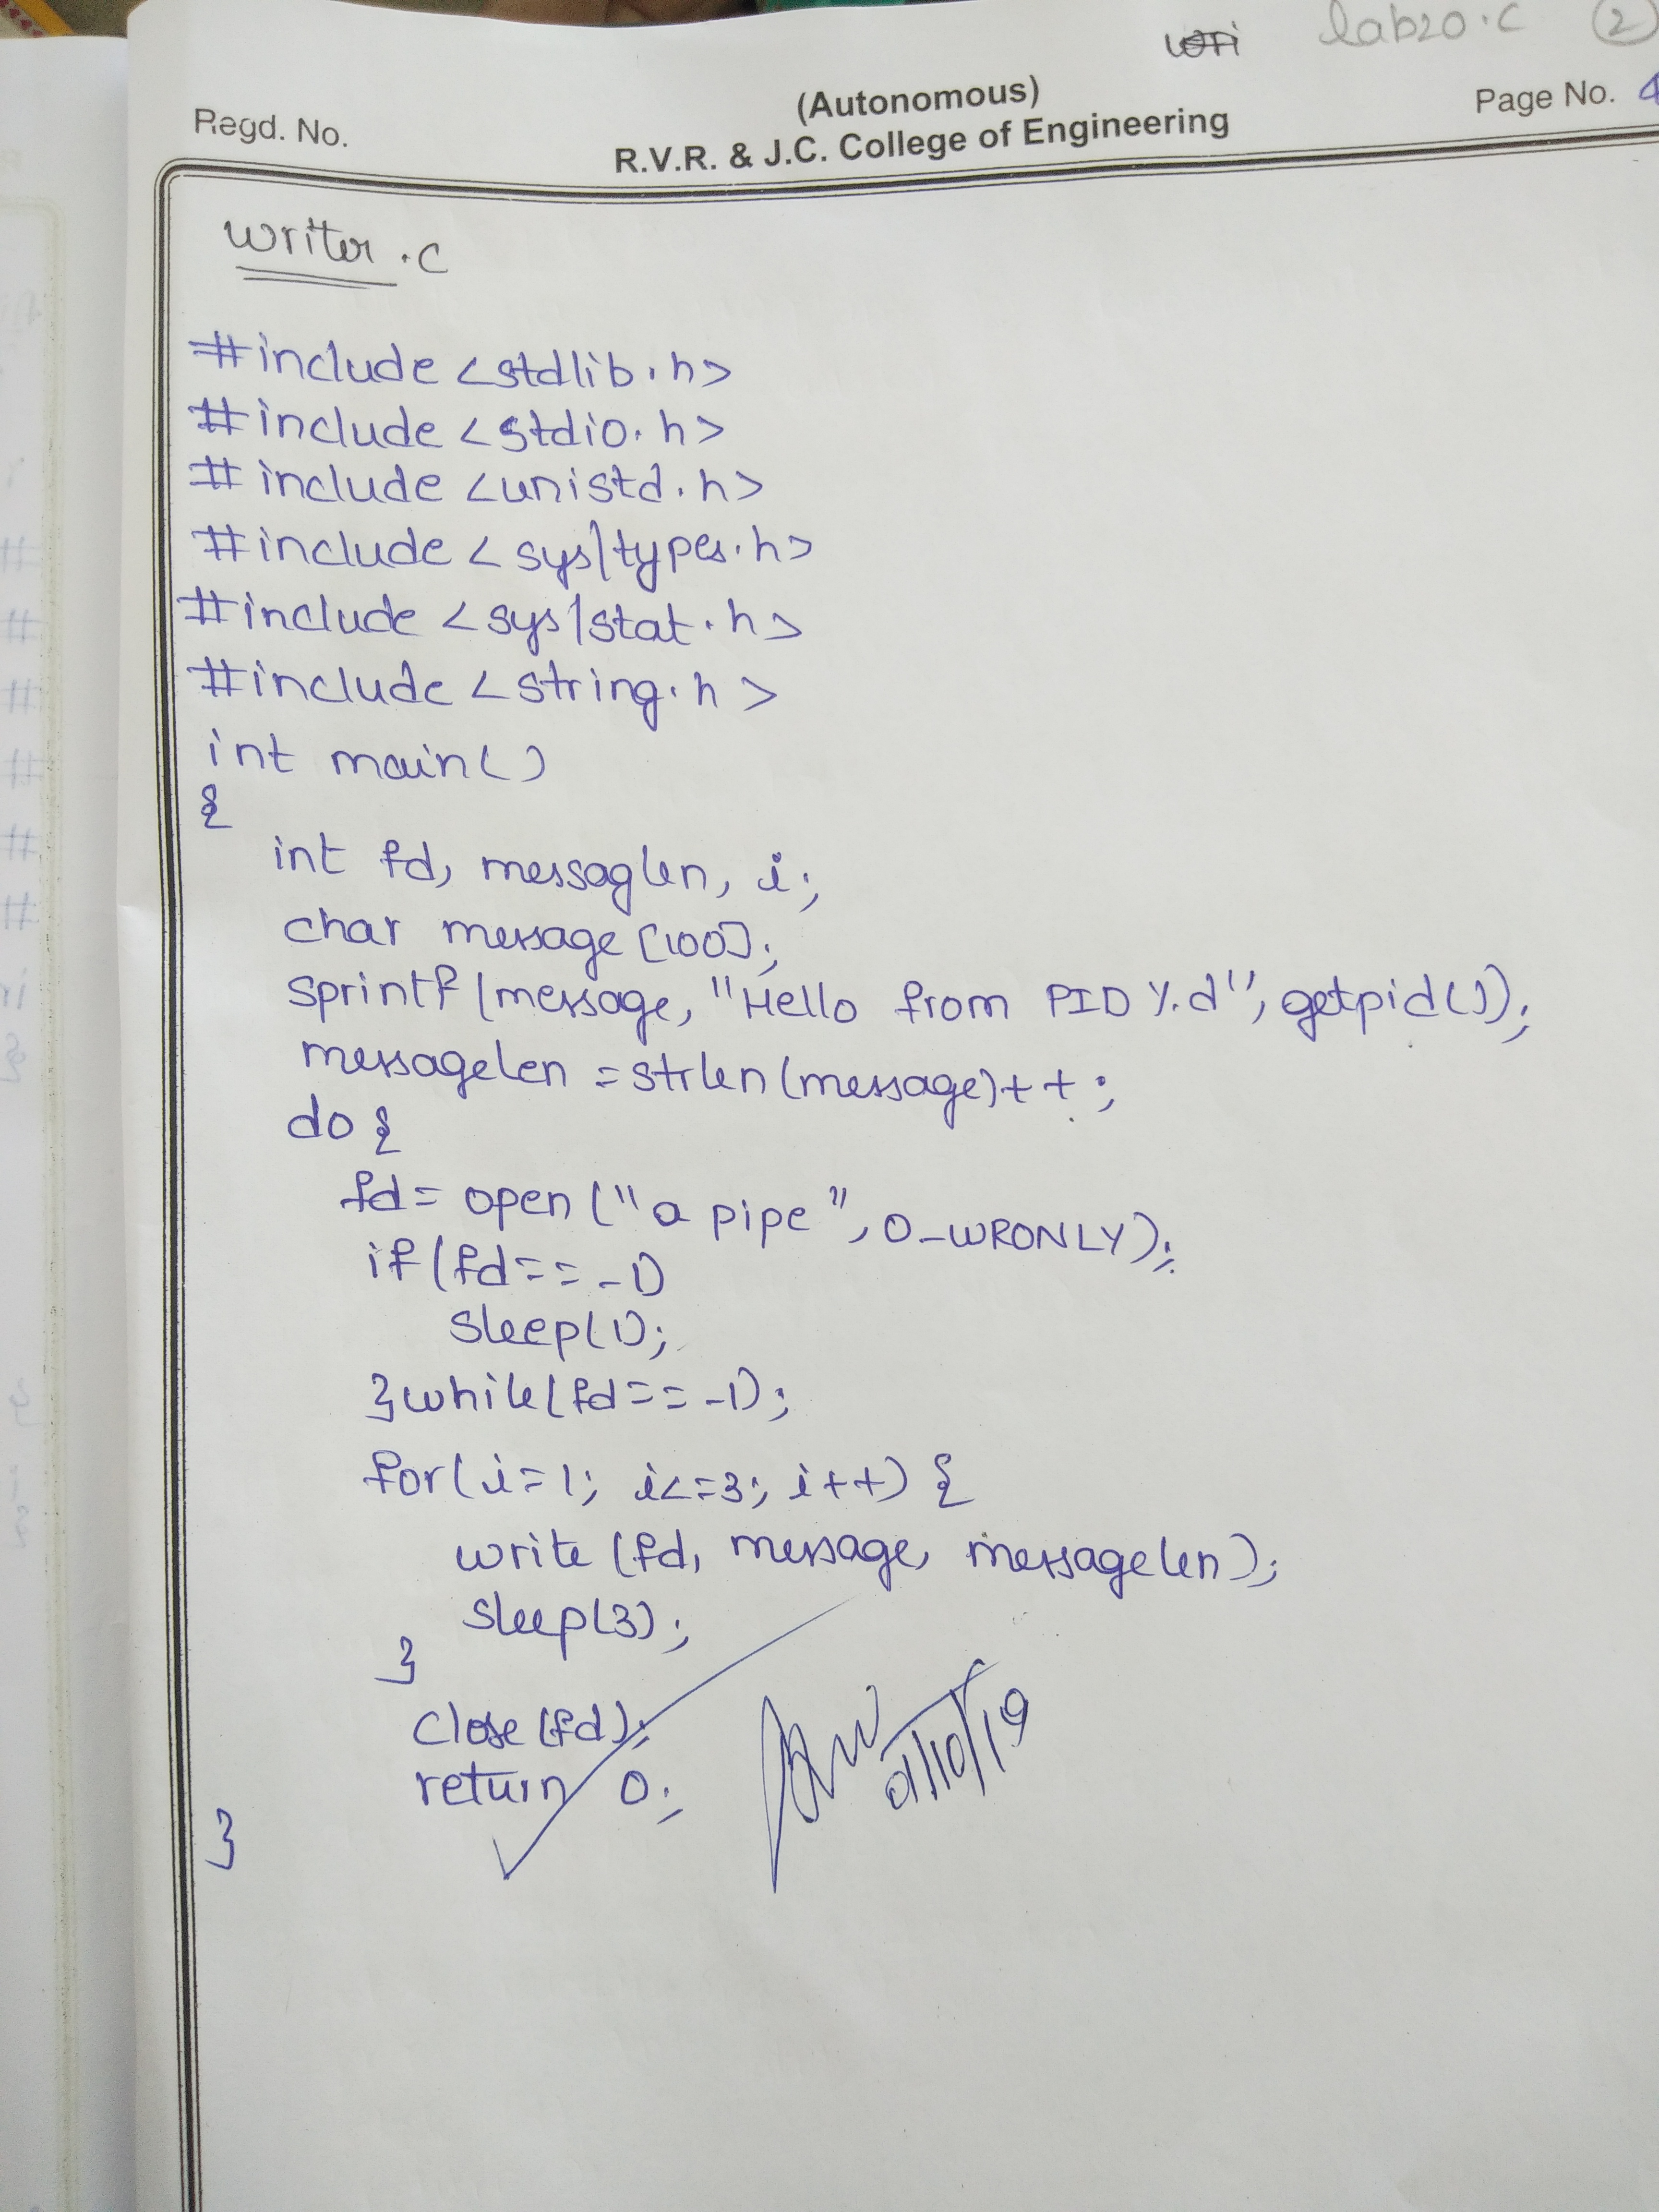 lab20.c 2
(Autonomous)
Regd. No. R.V.R. & J.C. College of Engineering Page No. 4
writer.c
#include <stdlib.h>
#include <stdio.h>
#include <unistd.h>
#include <sys/types.h>
#include <sys/stat.h>
#include <string.h>
int main()
{
int fd, messaglen, i;
char message[100];
sprintf(message, "Hello from PID %d", getpid());
messagelen = strlen(message)++;
do {
fd = open("a pipe", O_WRONLY);
if(fd == -1)
sleep(1);
}while(fd == -1);
for(i=1; i<=3; i++) {
write(fd, message, messagelen);
sleep(3);
}
close(fd);
return 0;
}